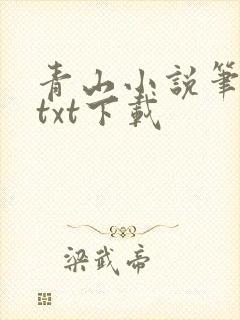 青山小説筆
txt下載
梁武帝